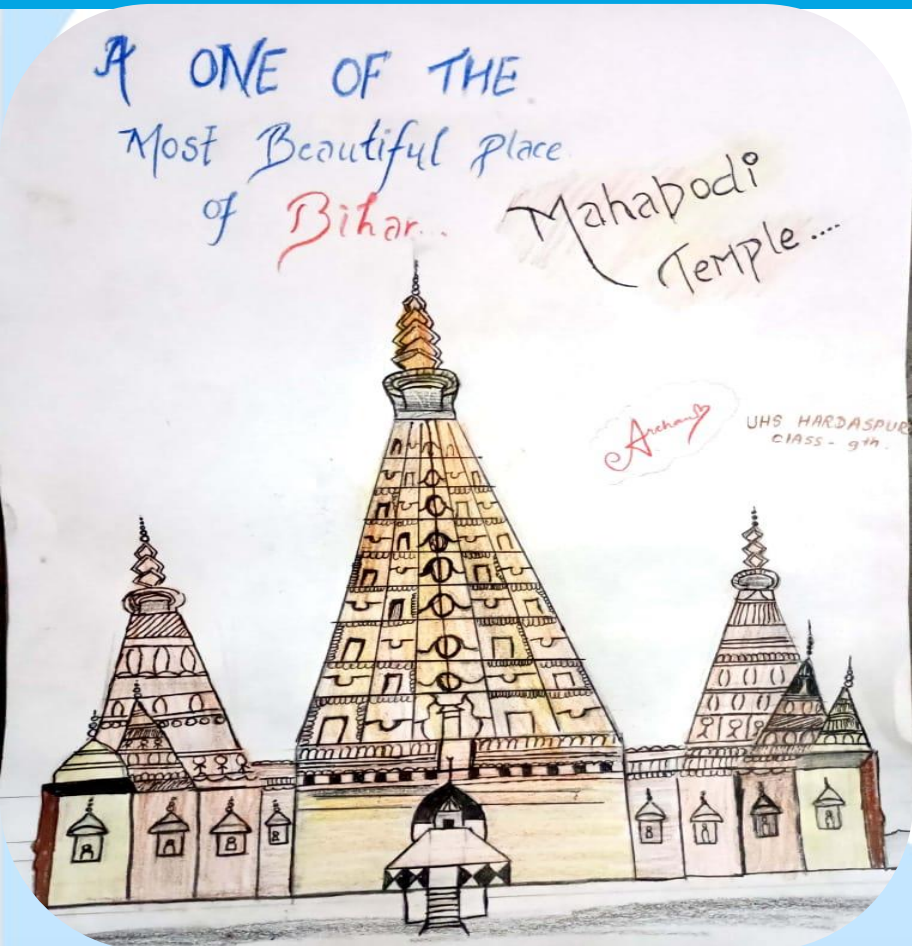 A ONE OF THE
Most Beautiful Place
of Bihar...
Mahabodi
Temple....
Archana
UHS HARDASPUR
CLASS - 9th.